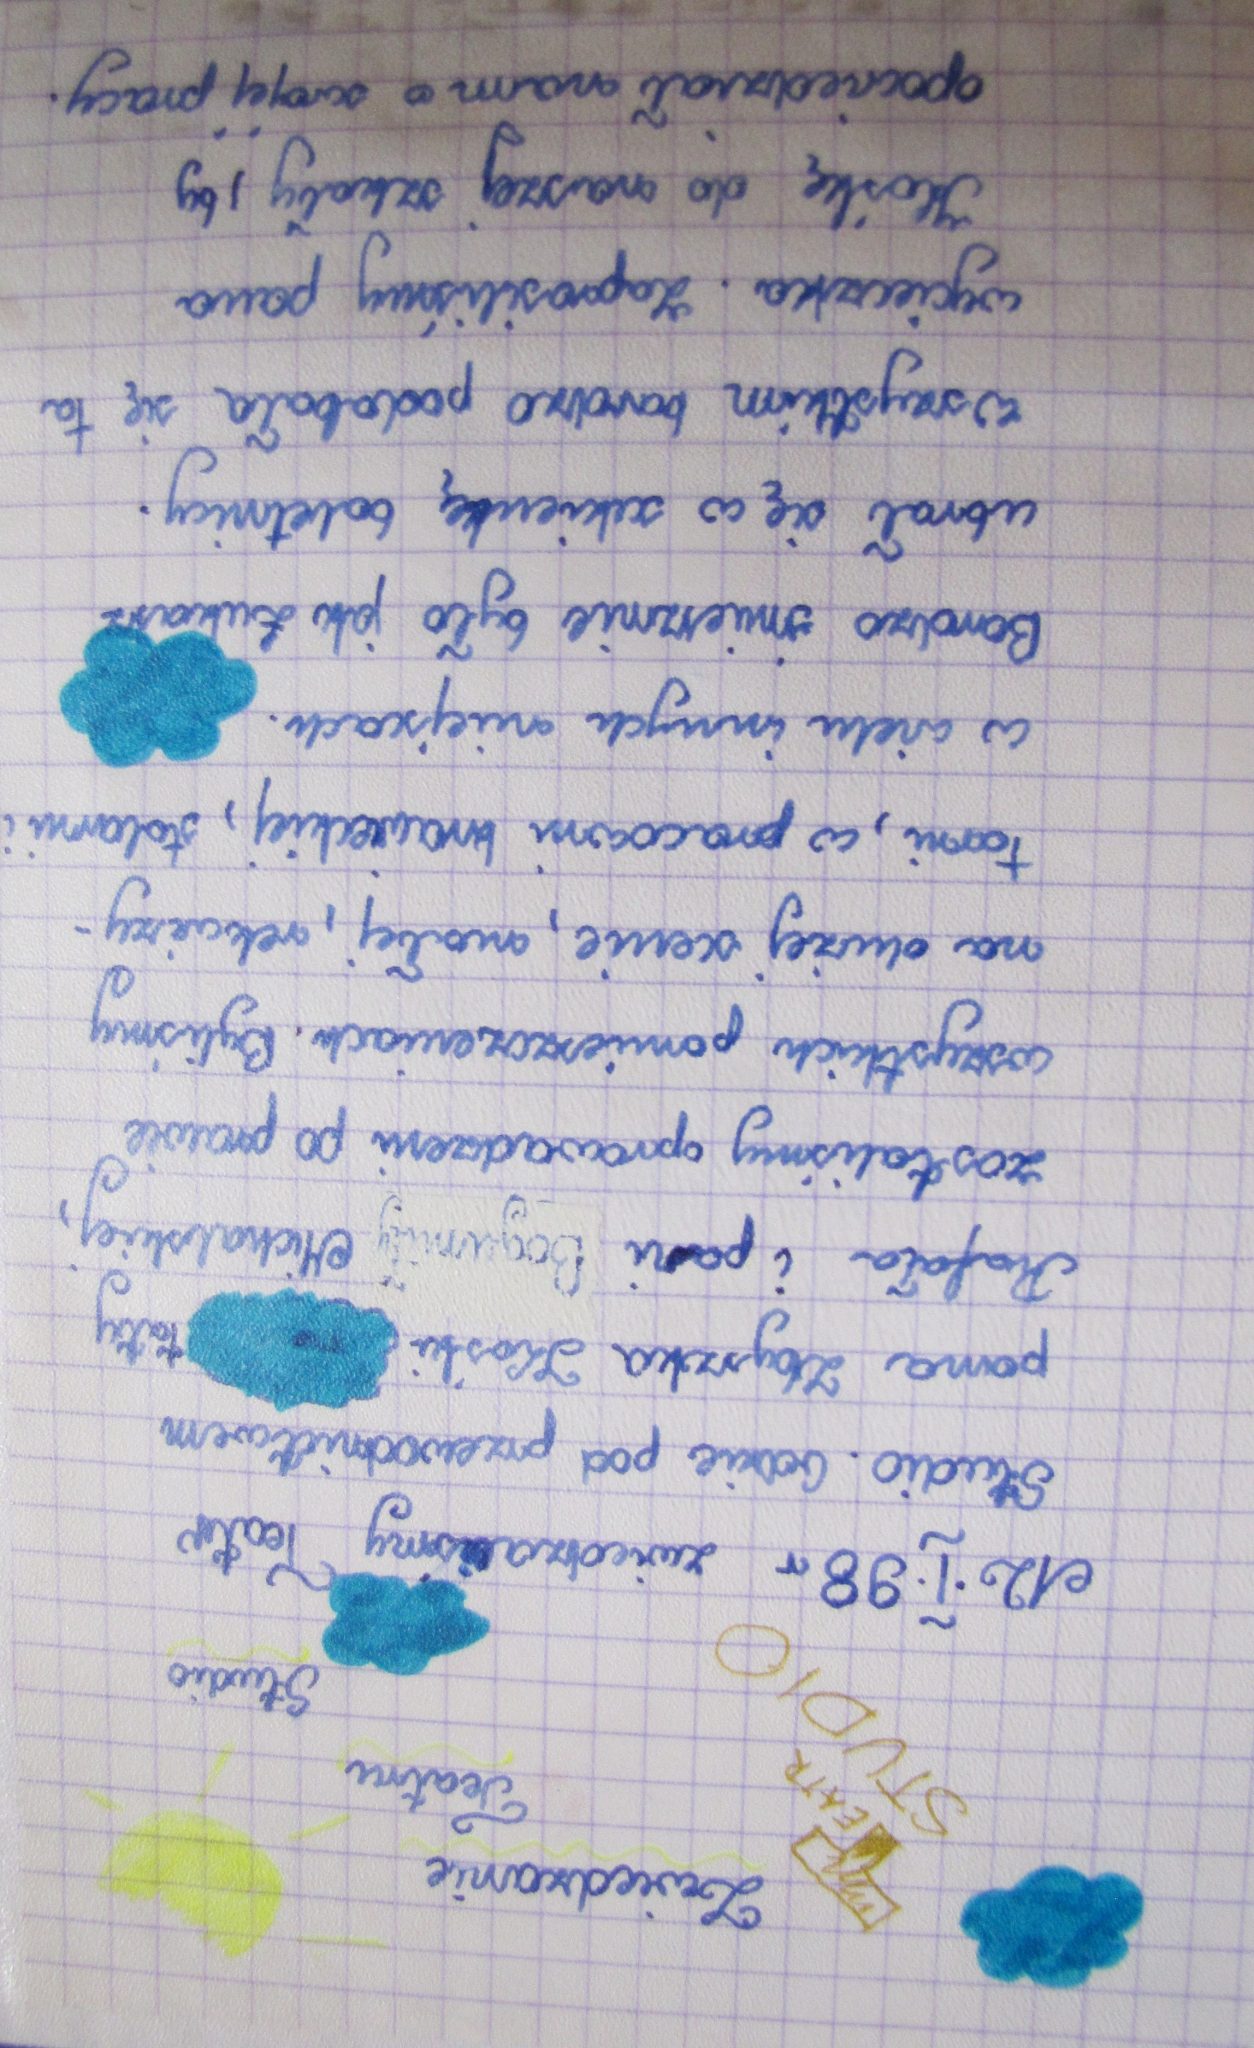 Zwiedzanie
Teatru
Studio
TEATR
STUDIO
12.I.98r zwiedzaliśmy Teatr
Studio. Gdzie pod przewodnictwem
pana Zbyszka Kośki taty
Rafała i pani Bogumiły Michalskiej,
zostaliśmy oprowadzeni po prawie
wszystkich pomieszczeniach. Byliśmy
na dużej scenie, małej, rekwizy-
torni, w pracowni krawieckiej, stolarni i
w wielu innych miejscach.
Bardzo śmiesznie było jak Łukasz
ubrał się w sukienkę baletnicy.
Wszystkim bardzo podobała się ta
wycieczka. Zaprosiliśmy pana
Kośkę do naszej szkoły, by
opowiedział nam o swojej pracy.